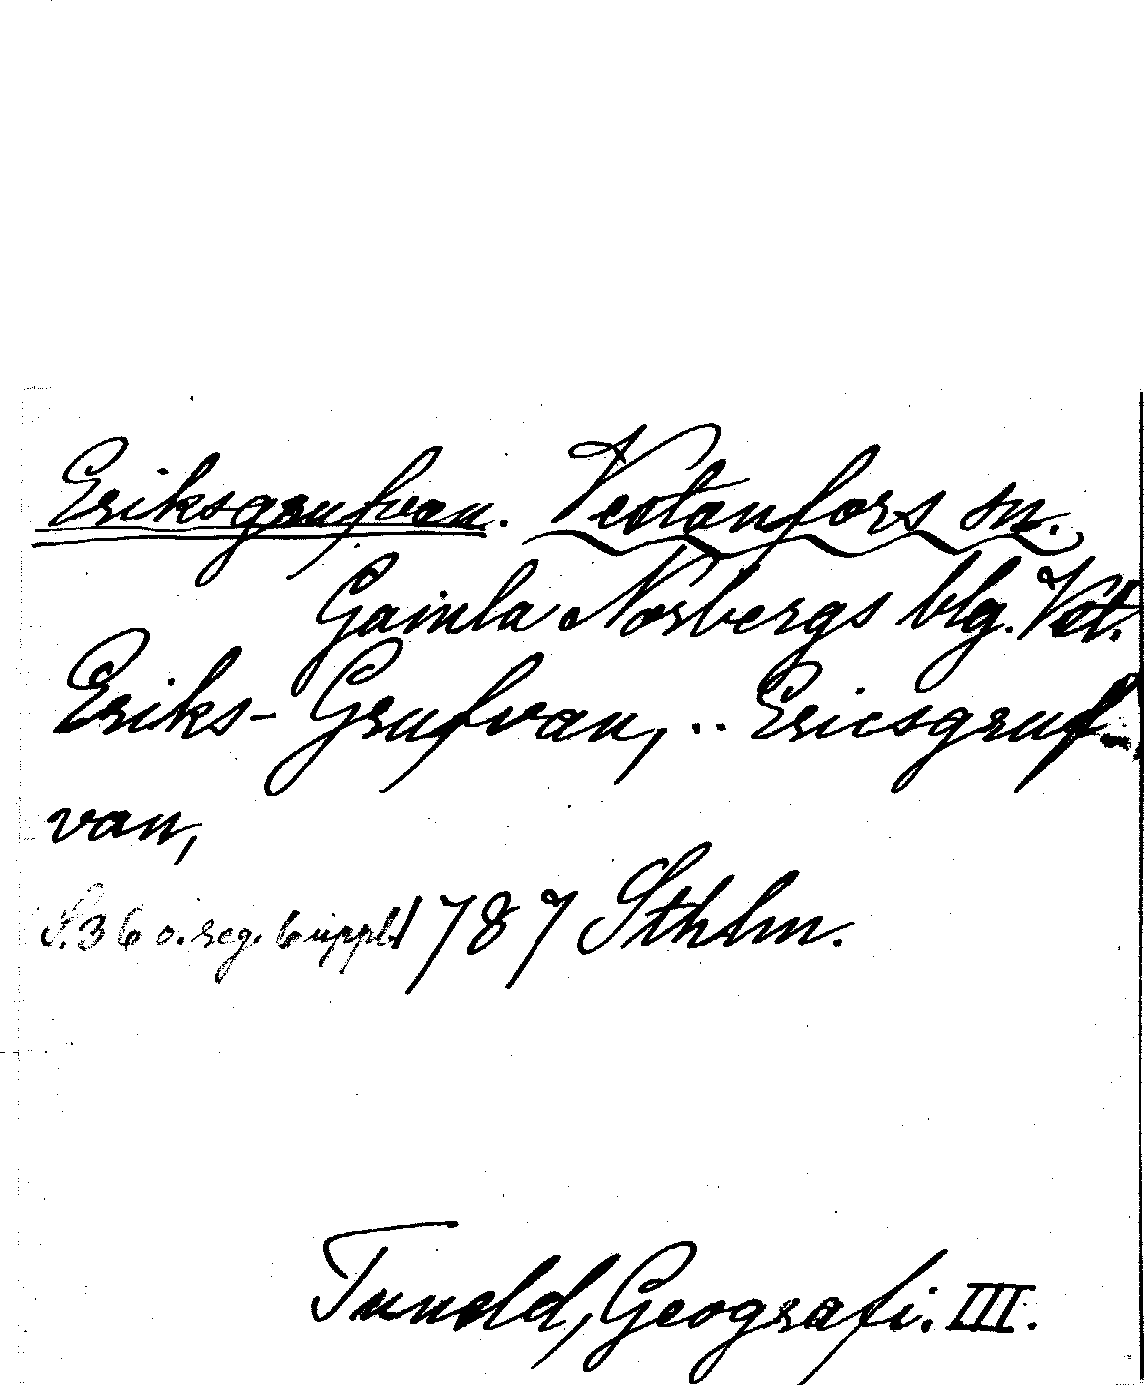 Eriksgrufvan. Vestanfors sn.
Gamla Norbergs blg. Vst.
Eriks-Grufvan, .. Ericsgruf-
van,
S. 36 o. reg. 6 uppl. 1787 Sthlm.
Tuneld, Geografi. III.